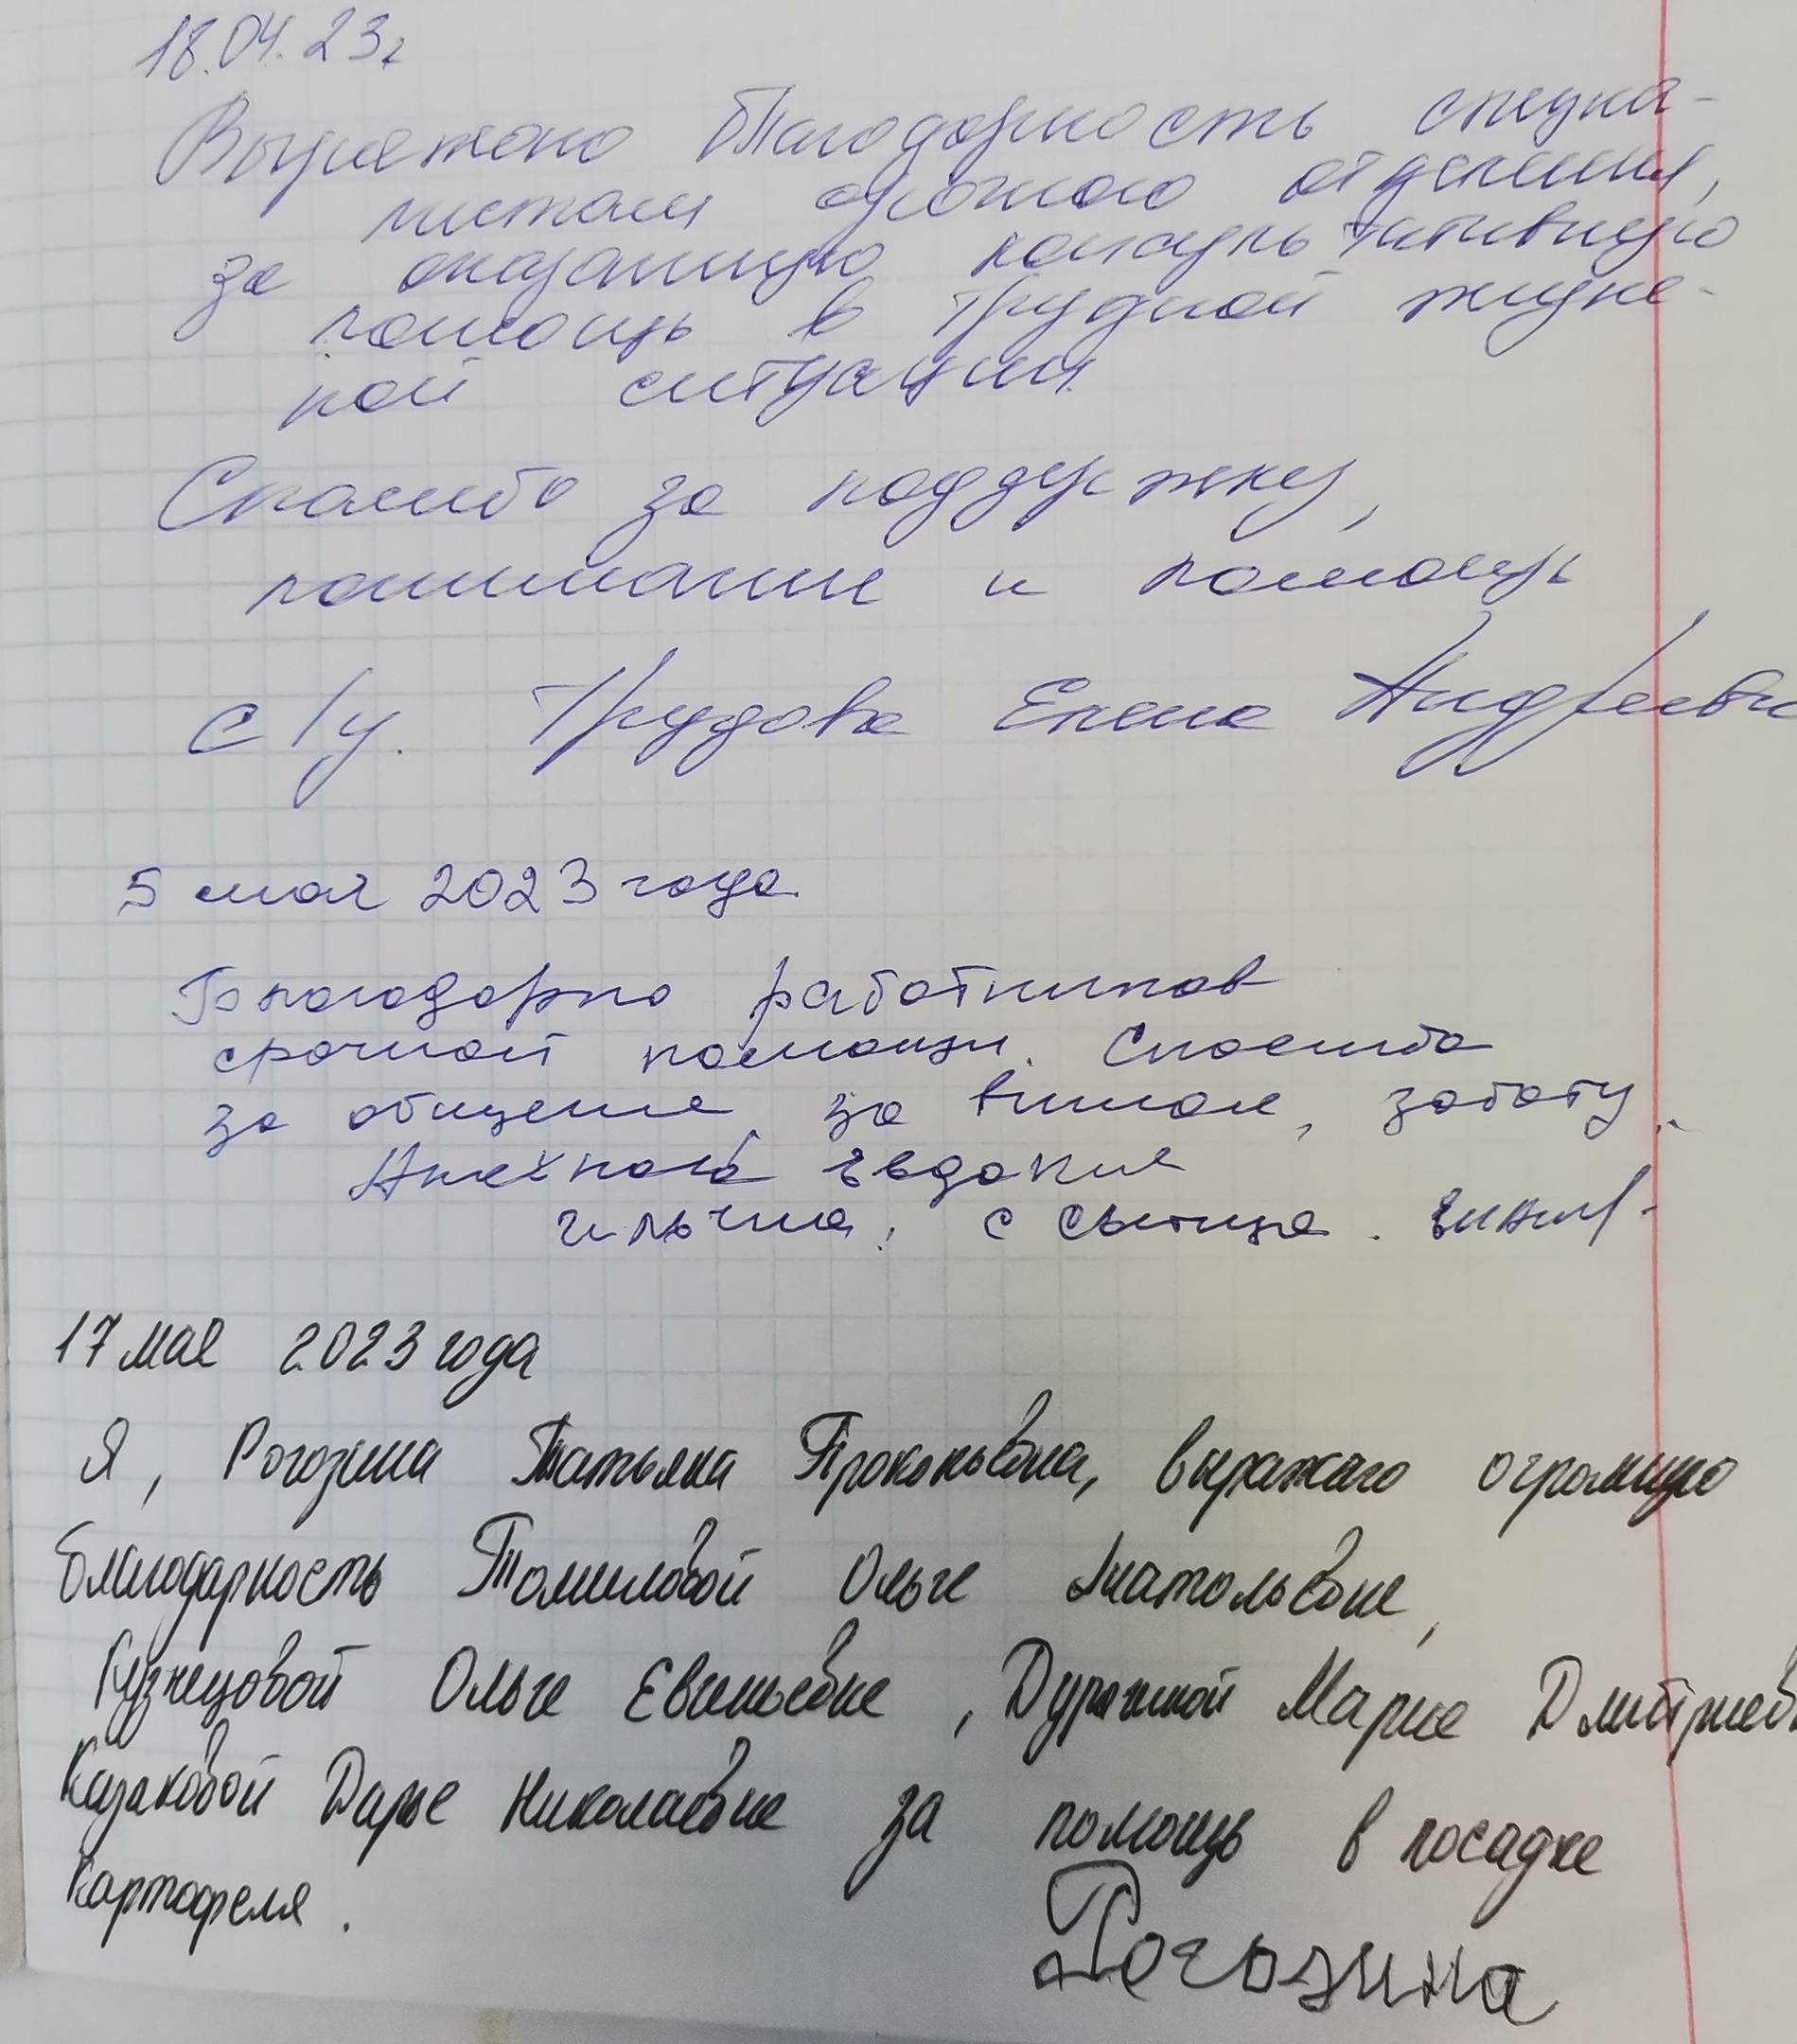 18.04.23г
Выражаю благодарность специа-
листам срочного отделения,
за оказанную консультативную
помощь в трудной жизне-
ной ситуации.
Спасибо за поддержку,
понимание и помощь
с/у. Трудова Елена Андреевн
5 мая 2023 года
Благодарю работников
срочной помощи. Спасибо
за общение, за вниман, заботу.
Евдокия
с
17 мая 2023 года
Я, Рогозина Татьяна Прокопьевна, выражаю огромную
благодарность Томиловой Ольге Анатольевне,
Кузнецовой Ольге Евгеньевне, Марие Дмитриев
Казаковой Дарье Николаевне за помощь в посадке
картофеля.
Рогозина